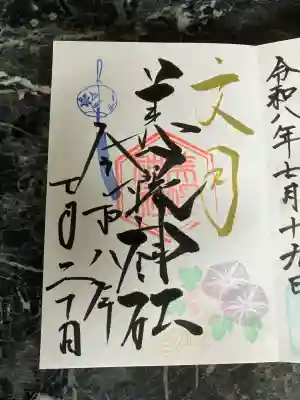 令和八年七月十九日
文月
美瑛神社
令和八年
七月二十日